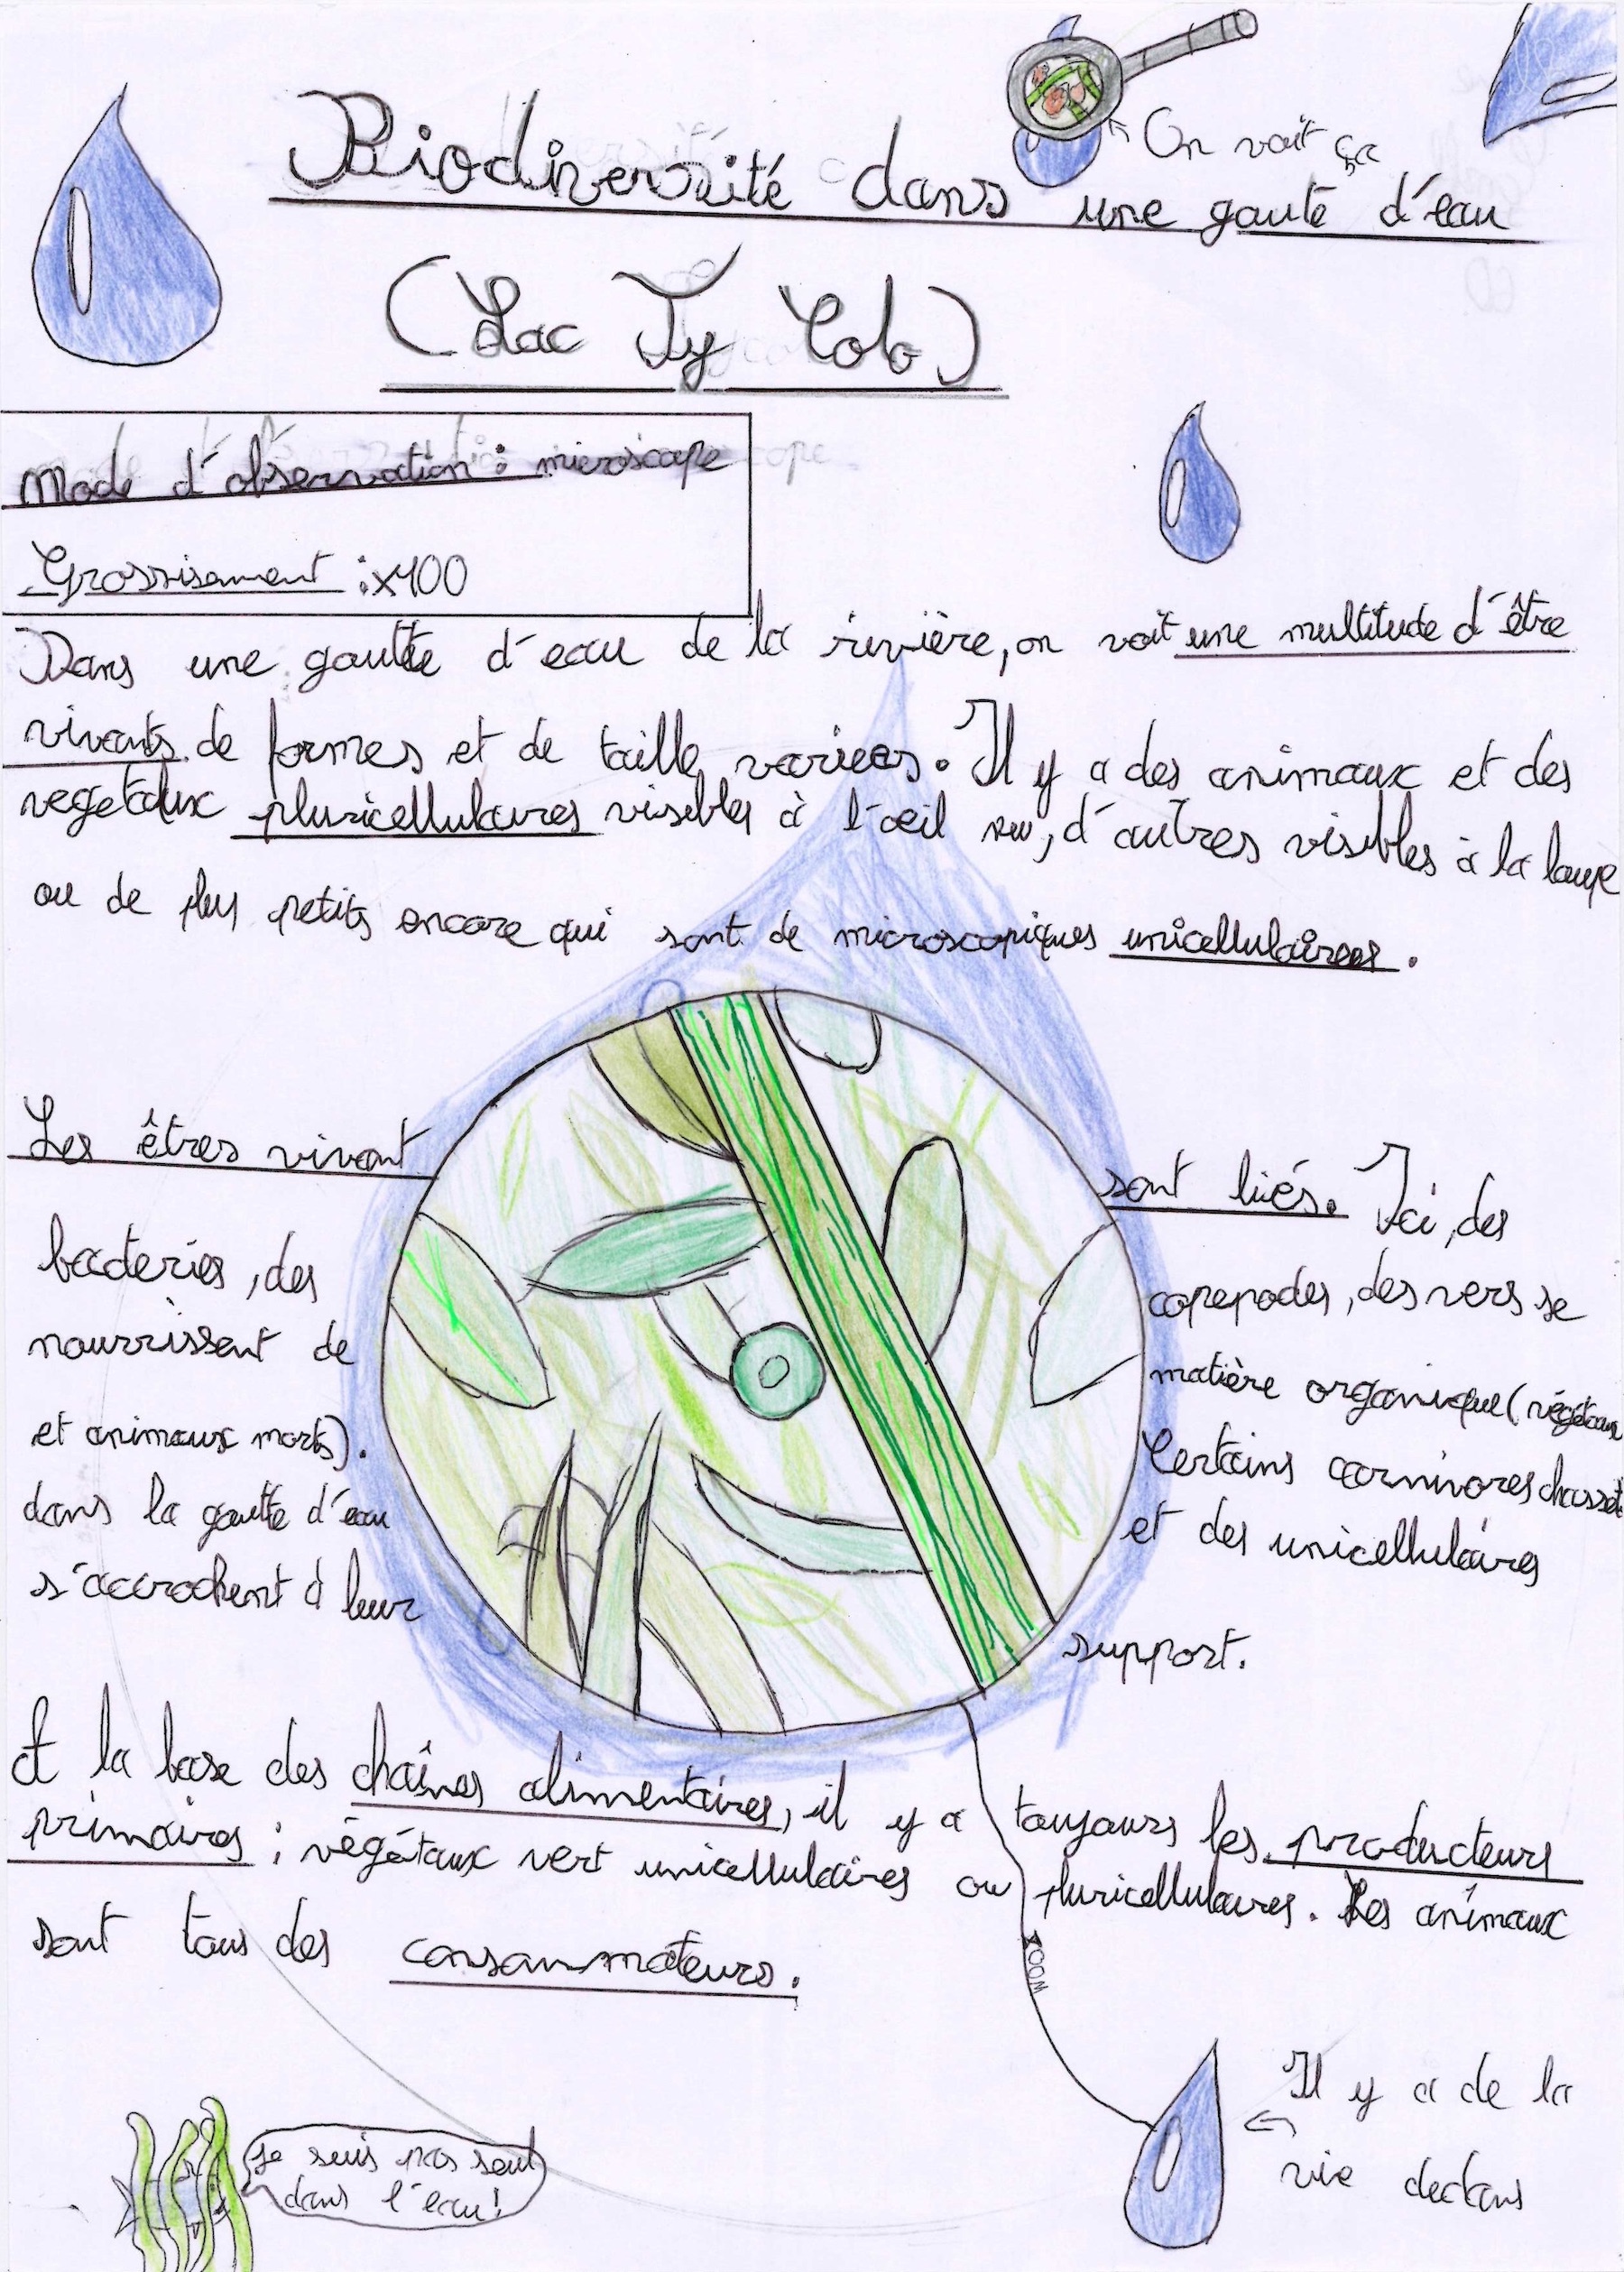 On voit ça
Biodiversité dans une goute d'eau
(Lac Ty Colo)
Mode d'observation : microscope
Grossisement : x400
Dans une goutte d'eau de la rivière, on voit une multitude d'être
vivants de formes et de taille variees. Il y a des animaux et des
vegetaux pluricellulaires visibles à l'œil nu, d'autres visibles à la loupe
ou de plus petits encore qui sont de microscopiques unicellulaires.
Les êtres vivant sont liés. Ici, des
bacteries, des copepodes, des vers se
nourrissent de matière organique (végétaux
et animaux morts). Certains carnivores chassent
dans la goutte d'eau et des unicellulaires
s'accrochent à leur support.
A la base des chaînes alimentaires, il y a toujours les producteurs
primaires : végétaux vert unicellulaires ou pluricellulaires. Les animaux
sont tous des consommateurs.
ZOOM
Il y a de la
vie dedans
Je suis pas seul
dans l'eau!